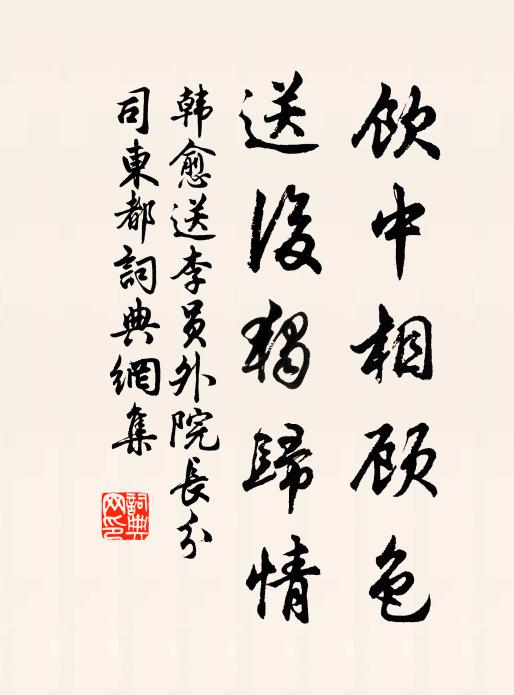 飲中相顾色
送後獨歸情
韩愈送李員外院長分
司東都詞典網集
詞典
网印